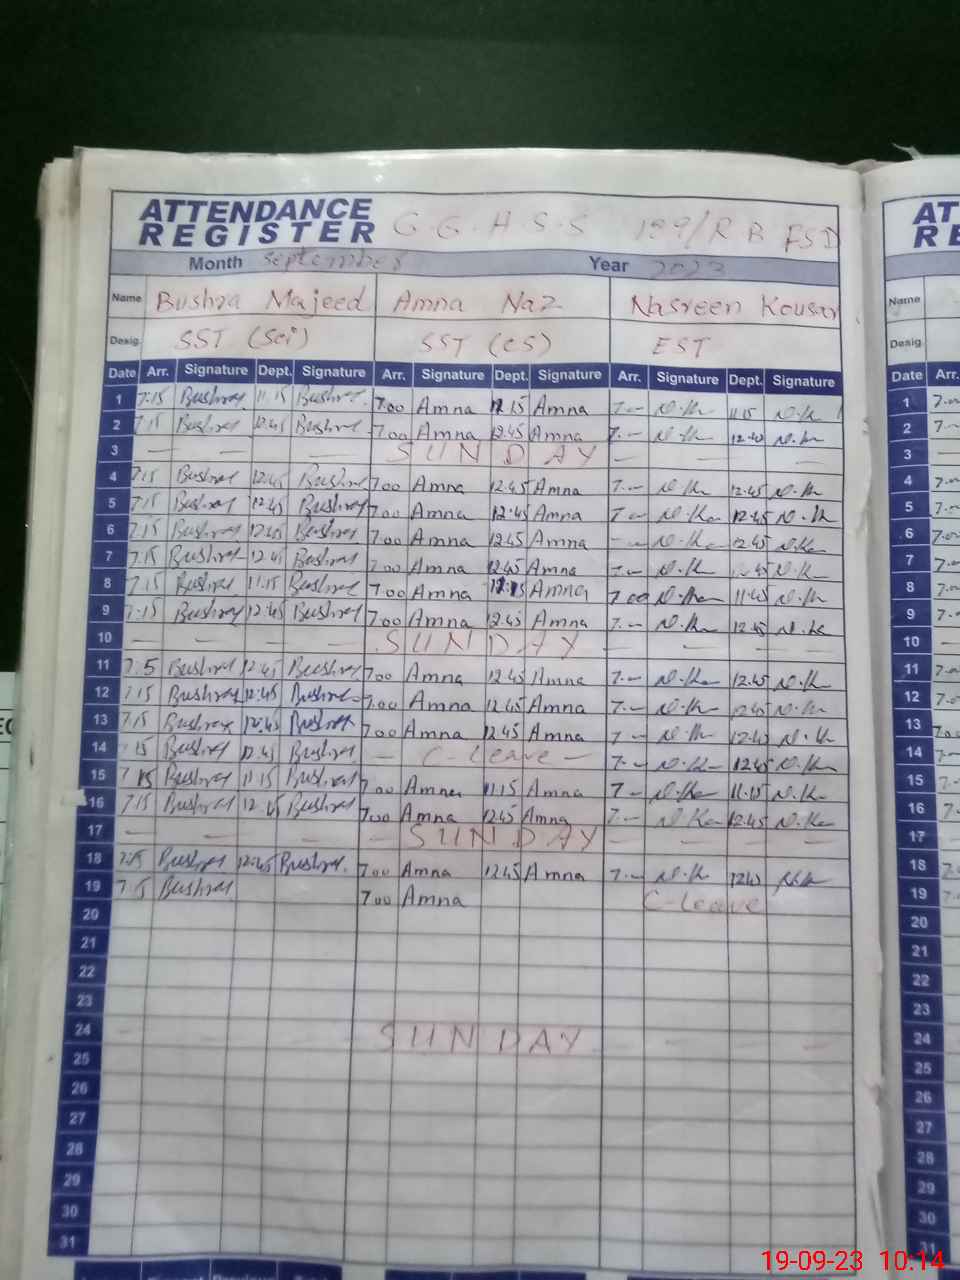 ATTENDANCE REGISTER G.G.H.S.S 189/RB FSD
Month September Year 2023
Name Bushra Majeed Amna Naz Nasreen Kousar
Desig. SST (Sci) SST (CS) EST
Date Arr. Signature Dept. Signature Arr. Signature Dept. Signature Arr. Signature Dept. Signature
1 7.15 Bushra 11.15 Bushra 7.00 Amna 11.15 Amna 7.— N.K 11.15 N.K
2 7.15 Bushra 12.45 Bushra 7.00 Amna 12.45 Amna 7.— N.K N.K
3 — — — SUNDAY — — —
4 7.15 Bushra 12.45 Bushra 7.00 Amna 12.45 Amna 7.— N.K 12.45 N.K
5 7.15 Bushra 12.45 Bushra 7.00 Amna 12.45 Amna 7.— N.K 12.45 N.K
6 7.15 Bushra 12.45 Bushra 7.00 Amna 12.45 Amna N.K 12.45 N.K
7 7.15 Bushra 12.45 Bushra 7.00 Amna 12.45 Amna 7.— N.K N.K
8 7.15 Bushra 11.15 Bushra 7.00 Amna Amna 7.00 N.K 11.45 N.K
9 7.15 Bushra 12.45 Bushra 7.00 Amna 12.45 Amna 7.— N.K 12.45 N.K
10 — — — SUNDAY — — — —
11 7.5 Bushra 12.45 Bushra 7.00 Amna 12.45 Amna 7.— N.K 12.45 N.K
12 7.15 Bushra 12.45 Bushra 7.00 Amna 12.45 Amna 7.— N.K 12.45 N.K
13 7.15 Bushra 12.45 Bushra 7.00 Amna 12.45 Amna 7— N.K 12.45 N.K
14 15 Bushra 12.45 Bushra — C-Leave — 7.— N.K 12.45 N.K
15 7.15 Bushra 11.15 Bushra 7.00 Amna 11.15 Amna 7— N.K 11.15 N.K
16 7.15 Bushra Bushra 7.00 Amna 12.45 Amna 7.— N.K 12.45 N.K
17 — — — SUNDAY — — — —
18 7.15 Bushra 12.45 Bushra 7.00 Amna 12.45 Amna 7.— N.K N.K
19 7.5 Bushra 7.00 Amna C-Leave
20
21
22
23
24 SUNDAY
25
26
27
28
29
30
31
AT
RE
Name
Desig.
Date Arr.
1
2
3
4
5
6
7
8
9
10
11
12
13
14
15
16
17
18
19
20
21
22
23
24
25
26
27
28
29
30
31
19-09-23 10:14